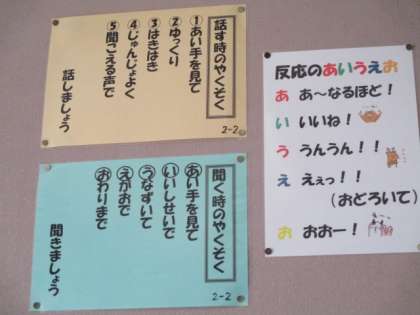 話す時のやくそく
①あい手を見て
②ゆっくり
③はきはき
④じゅんじょよく
⑤聞こえる声で
話しましょう
2-2
聞く時のやくそく
あい手を見て
いいしせいで
うなずいて
えがおで
おわりまで
聞きましょう
2-2
反応のあいうえお
あ あ~なるほど!
い いいね!
う うんうん!!
え えぇっ!!
(おどろいて)
お おおー!